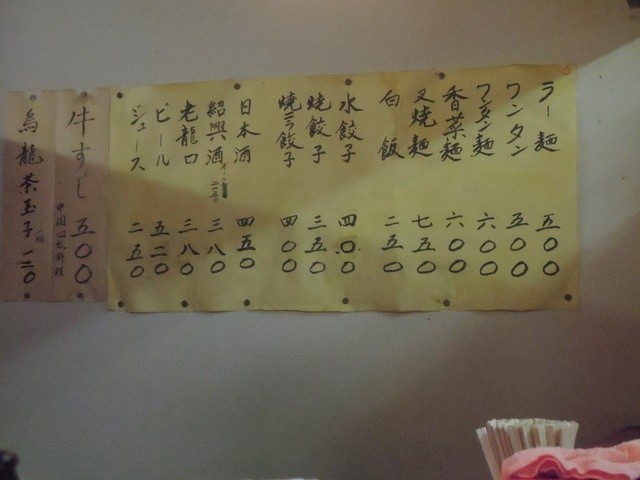 ラー麺 五〇〇
ワンタン 五〇〇
ワンタン麺 六〇〇
香菜麺 六〇〇
叉焼麺 七五〇
白飯 二五〇
水餃子 四〇〇
焼餃子 三五〇
焼ニラ餃子 四〇〇
日本酒 四五〇
紹興酒 三八〇
老龍口 三八〇
ビール 五二〇
ジュース 二五〇
牛すじ 五〇〇
烏龍茶玉子 一二〇